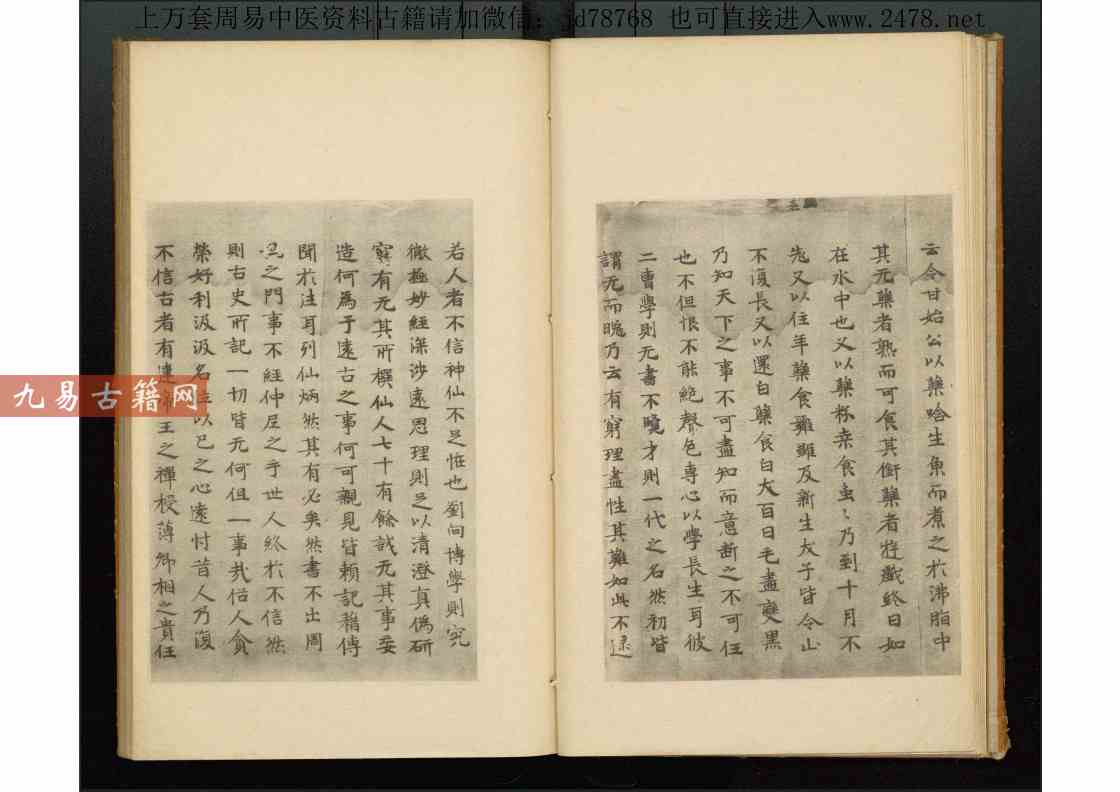 上万套周易中医资料古籍请加微信：jd78768 也可直接进入www.2478.net
云令甘始公以藥唅生魚而煮之於沸脂中
其无藥者熟而可食其銜藥者遊戲終日如
在水中也又以藥粉桒食蚕〻乃到十月不
老又以住年藥食雞雛及新生犬子皆令止
不復長又以還白藥食白犬百日毛盡變黑
乃知天下之事不可盡知而意断之不可任
也不但恨不能絶聲色專心以學長生耳彼
二曹學則无書不覽才則一代之名然初皆
謂无而晚乃云有窮理盡性其難如此不逮
若人者不信神仙不足恠也劉向博學則究
微極妙經深涉遠思理則足以清澄真偽研
窮有无其所撰仙人七十有餘誠无其事妄
造何為乎遠古之事何可親見皆賴記藉傳
聞於注耳列仙炳然其有必矣然書不出周
孔之門事不經仲尼之手世人終於不信然
則古史所記一切皆无何但一事哉俗人貪
榮好利汲汲名以己之心遠忖昔人乃復
不信古者有逃王之禪授薄卿相之貴任
九易古籍网